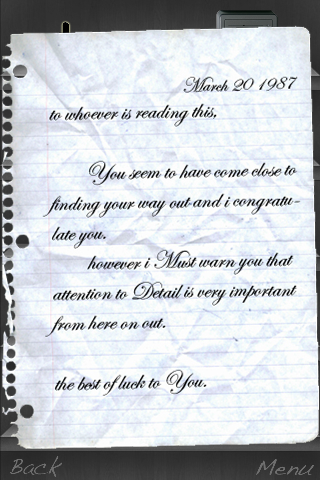 March 20 1987
to whoever is reading this,
You seem to have come close to
finding your way out and i congratu-
late you.
however i Must warn you that
attention to Detail is very important
from here on out.
the best of luck to You.
Back Menu